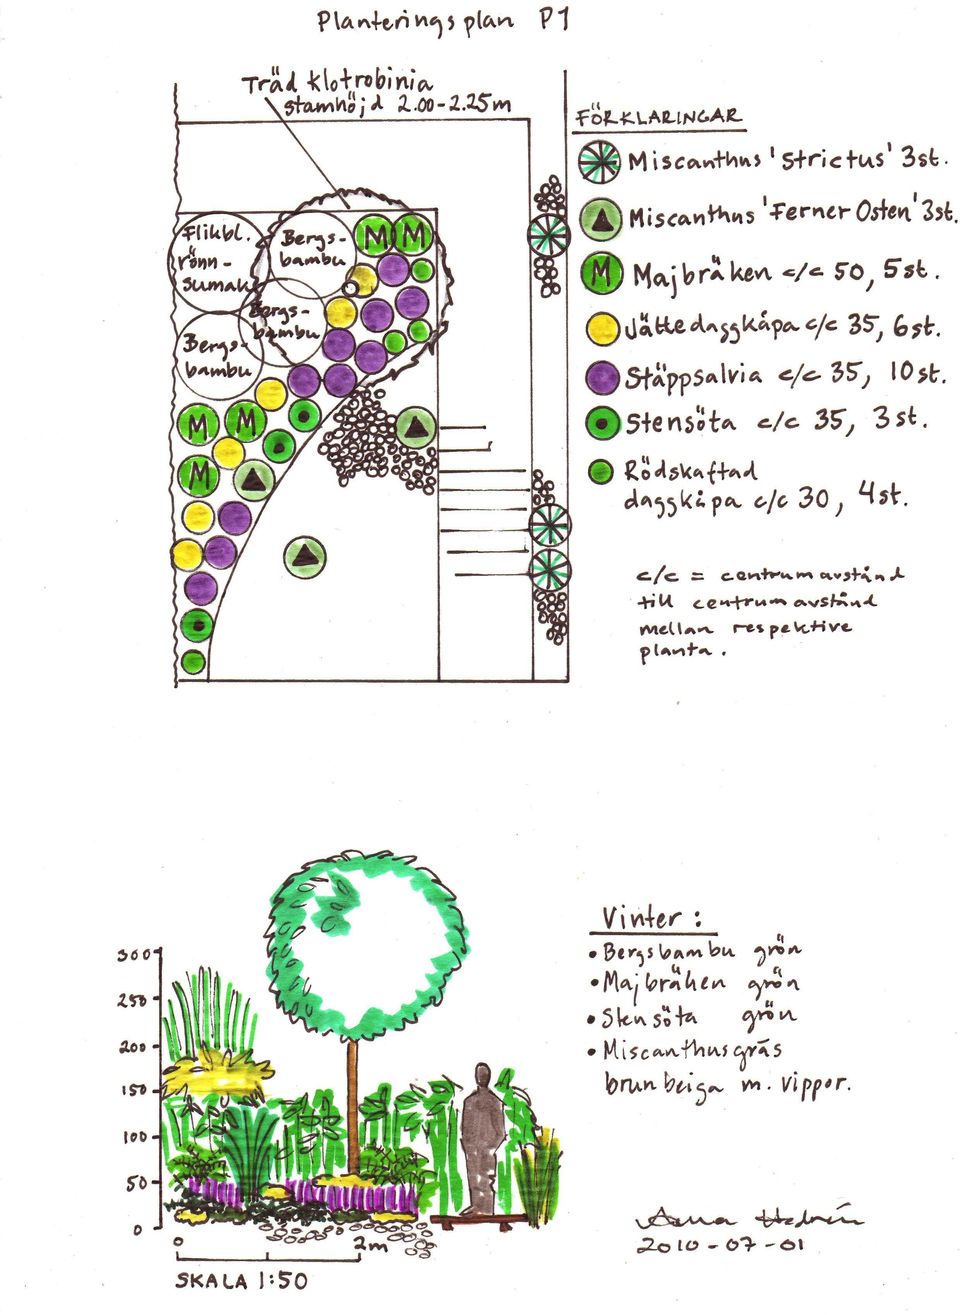 Planteringsplan P1
Träd Klotrobinia
stamhöjd 2.00-2.25m
Flikbl.
rönn-
sumak
Bergs-
bambu
M M
Bergs-
bambu
Bergs-
bambu
M M
M
FÖRKLARINGAR
Miscanthus 'Strictus' 3st.
Miscanthus 'Ferner Osten' 3st.
M Majbräken c/c 50, 5st.
Jättedaggkåpa c/c 35, 6st.
Stäppsalvia c/c 35, 10st.
Stensöta c/c 35, 3st.
Rödskaftad
daggkåpa c/c 30, 4st.
c/c = centrumavstånd
till centrumavstånd
mellan respektive
planta.
300
250
200
150
100
50
0
0 2m
SKALA 1:50
Vinter:
• Bergsbambu grön
• Majbräken grön
• Stensöta grön
• Miscanthusgräs
brunbeiga m. vippor.
2010-07-01